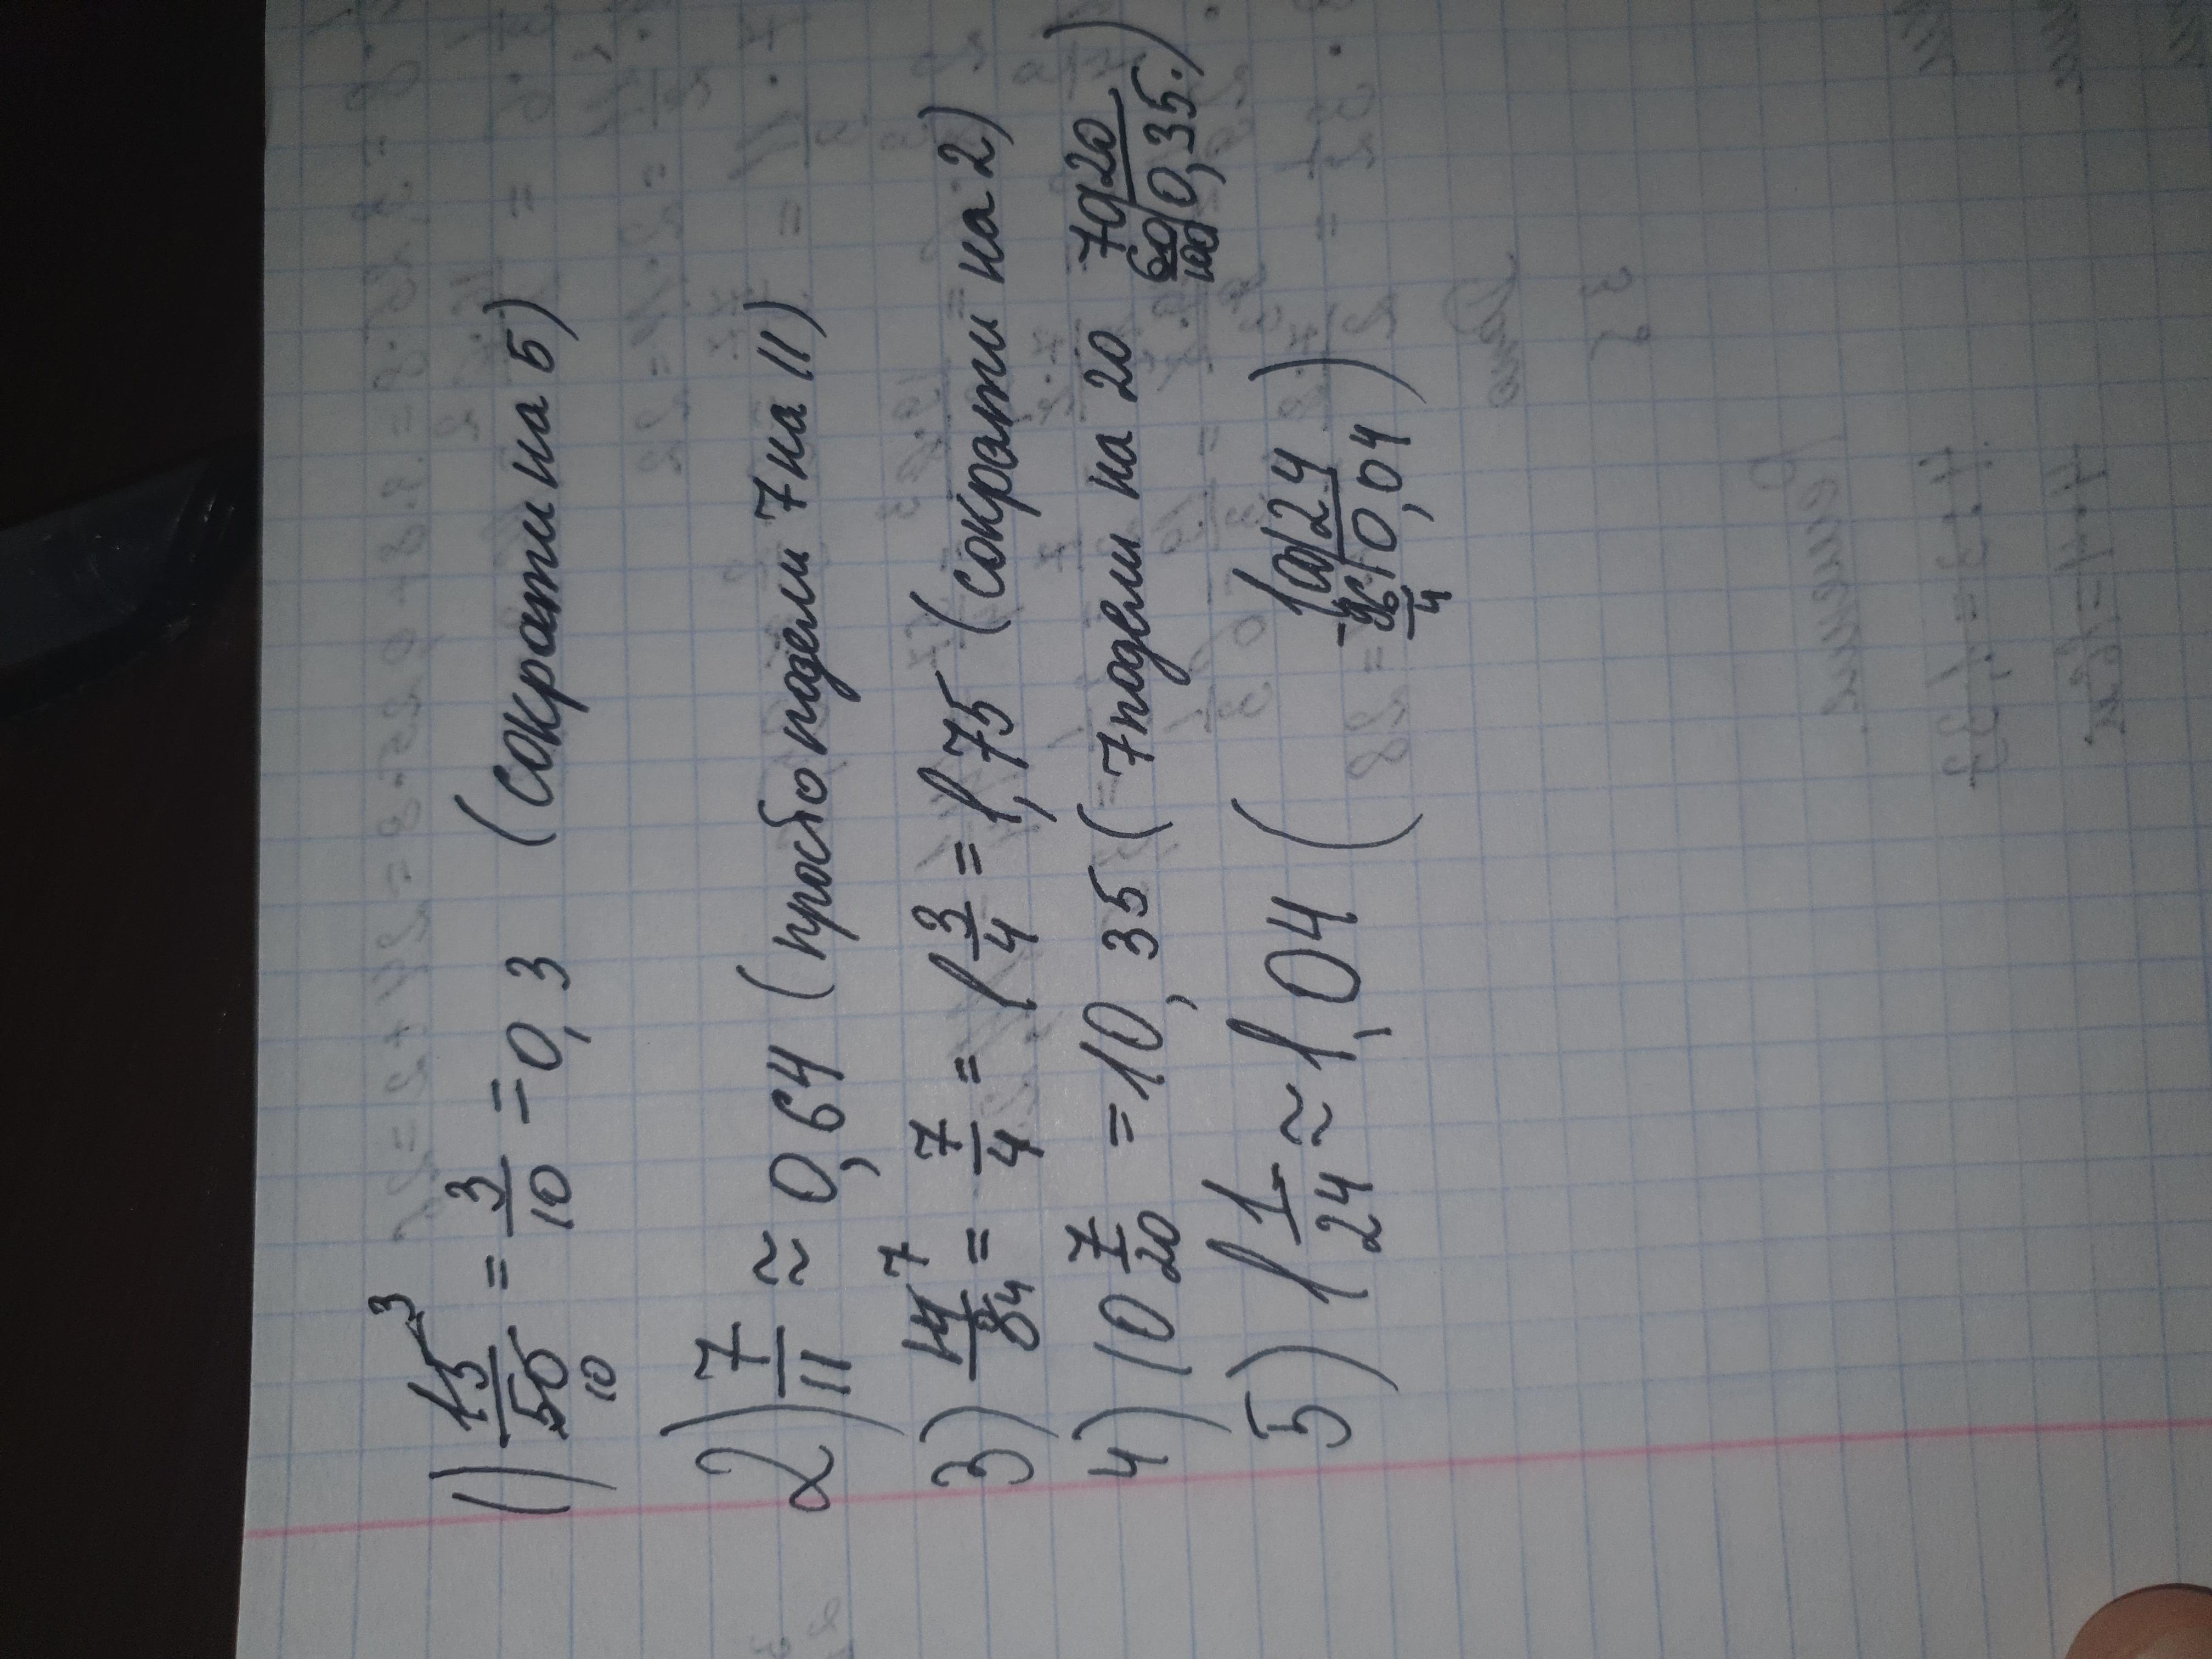 1) 15/50 3 10 = 3/10 = 0,3 (сократи на 5)
2) 7/11 ≈ 0,64 (просто подели 7 на 11)
3) 14/8 7 4 = 7/4 = 1 3/4 = 1,75 (сократи на 2)
4) 10 7/20 = 10,35 (7 подели на 20 70 20 60 0,35 100)
5) 1 1/24 ≈ 1,04 (100 24 96 0,04 4)